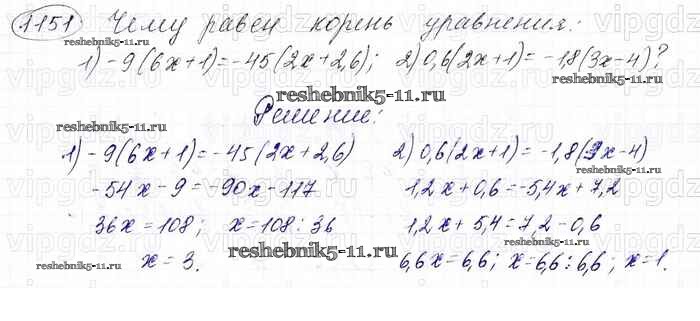 1151 Чему равен корень уравнения:
1) -9(6x+1)=-45(2x+2,6); 2) 0,6(2x+1)= -1,8(3x-4)?
reshebnik5-11.ru
reshebnik5-11.ru
Решение:
reshebnik5-11.ru
reshebnik5-11.ru
1) -9(6x+1)=-45(2x+2,6) 2) 0,6(2x+1)=-1,8(3x-4)
-54x-9=-90x-117 1,2x+0,6=-5,4x+7,2
36x=108; x=108:36 1,2x+5,4=7,2-0,6
reshebnik5-11.ru
reshebnik5-11.ru
x=3. 6,6x=6,6; x=6,6:6,6; x=1.
reshebnik5-11.ru
reshebnik5-11.ru
vipgdz.ru